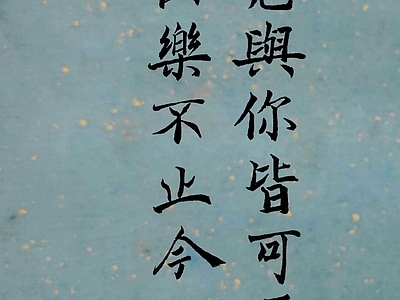 與你皆可
樂不止今